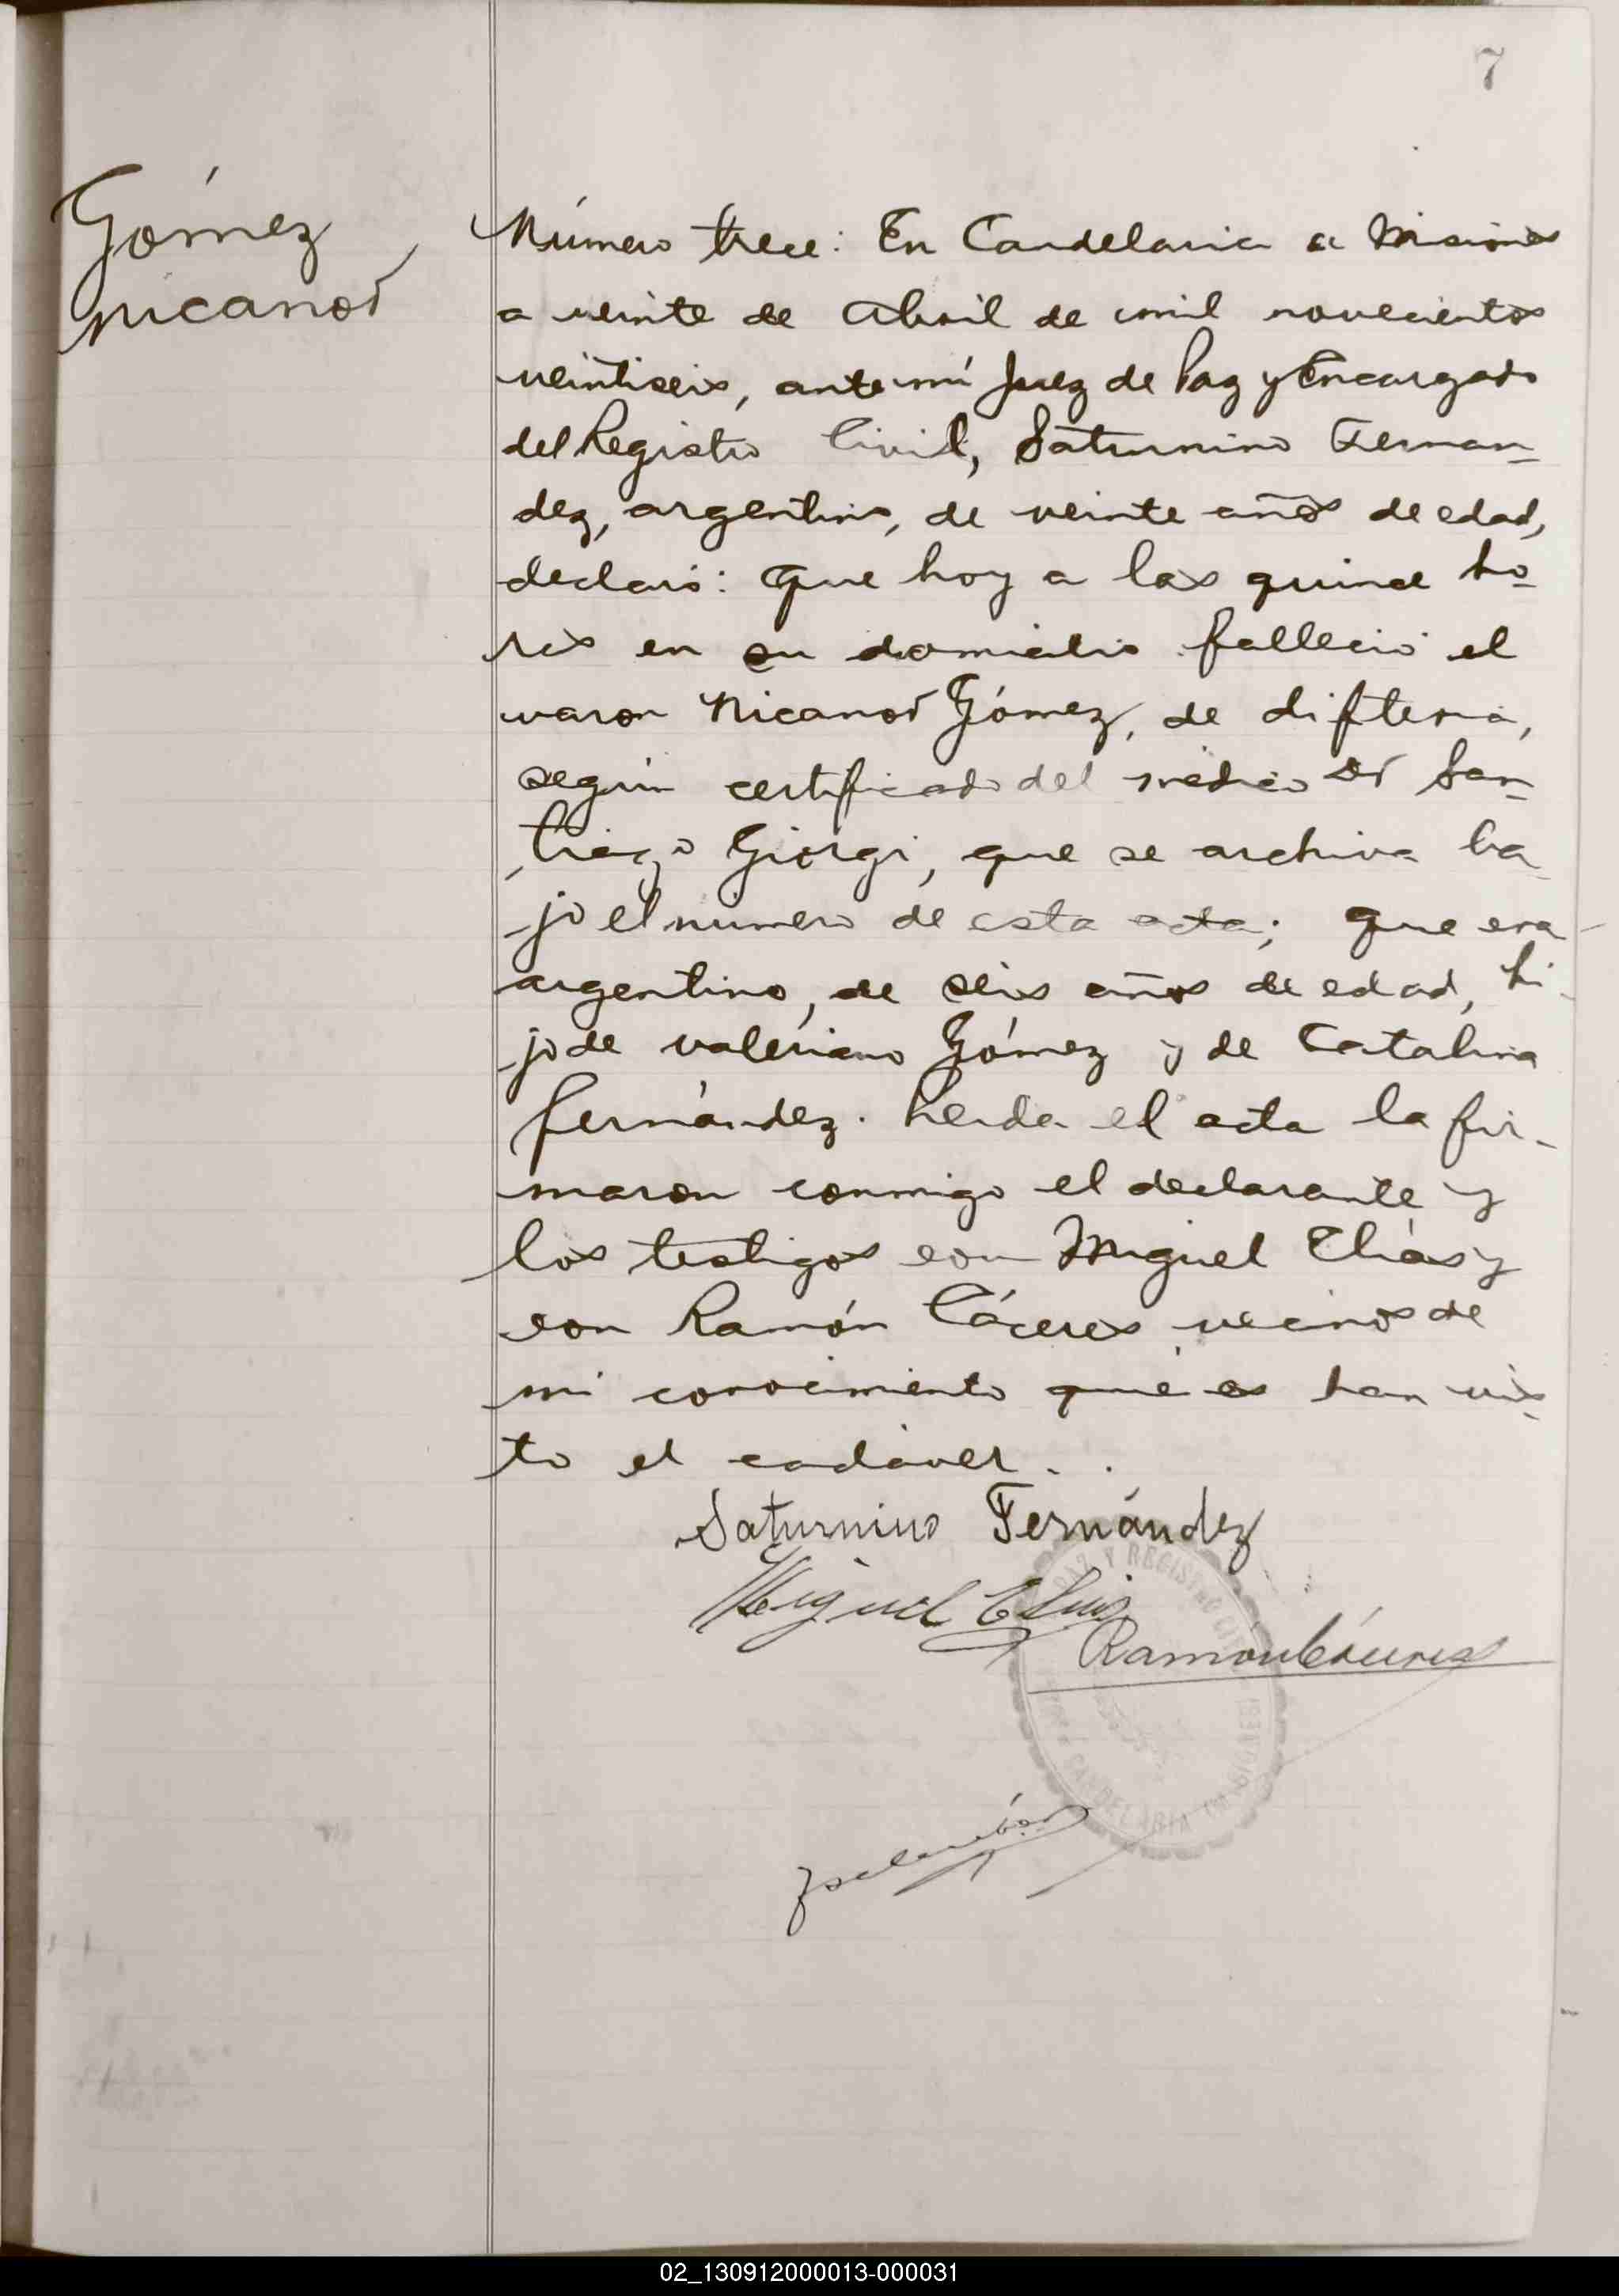 7
Gómez
Nicanor
Número trece: En Candelaria a Misiones
a veinte de Abril de mil novecientos
veintiseis, ante mí Juez de Paz y Encargado
del Registro Civil, Saturnino Fernan-
dez, argentino, de veinte años de edad,
declaró: Que hoy a las quince ho-
ras en su domicilio falleció el
varon Nicanor Gómez, de difteria,
según certificado del médico Dr San-
tiago Giorgi, que se archiva ba-
jo el número de esta acta; que era
argentino, de seis años de edad, hi-
jo de Valeriano Gómez y de Catalina
Fernández. Leida el acta la fir-
maron conmigo el declarante y
los testigos don Miguel Elías y
don Ramón Cáceres vecinos de
mi conocimiento que es han vis-
to el cadáver.
Saturnino Fernández
Miguel Elias
Ramón Cáceres
PAZ Y REGISTRO CIVIL
CANDELARIA (MISIONES)
02_130912000013-000031